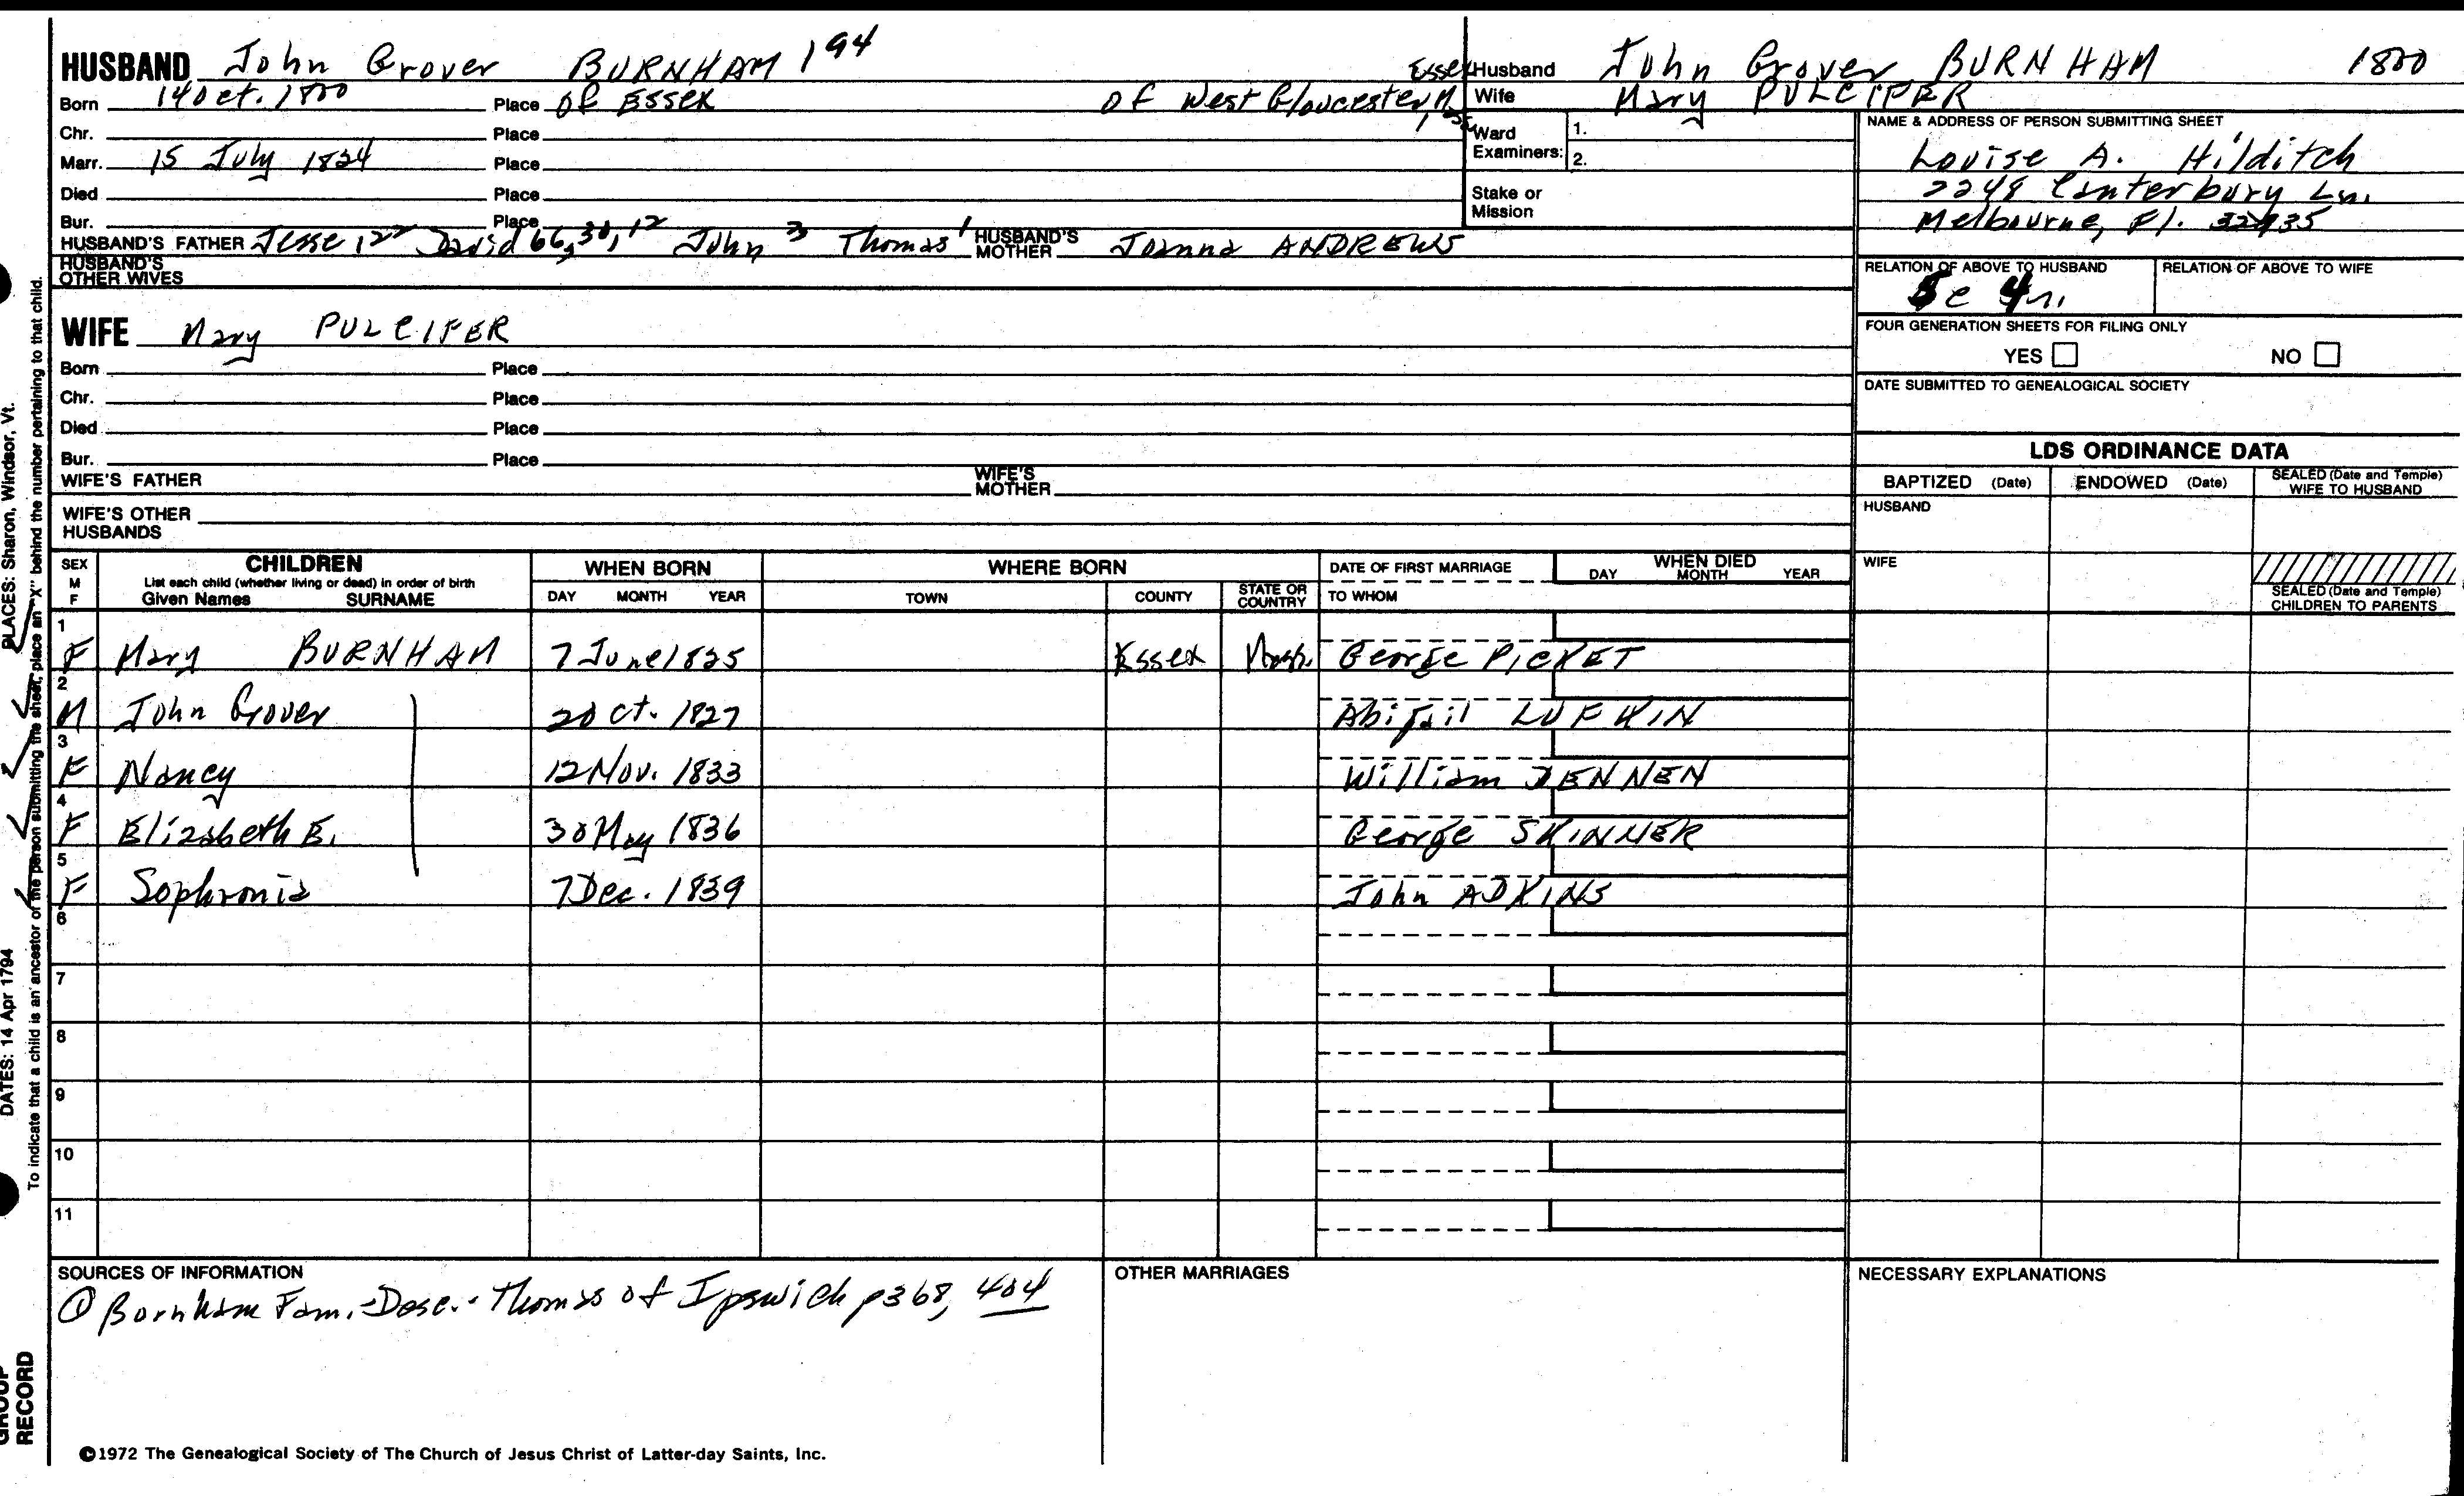 HUSBAND John Grover BURNHAM 194
Born 14 Oct. 1800 Place of Essex of West Gloucester, Essex
Chr. Place
Marr. 15 July 1824 Place
Died Place
Bur. Place
HUSBAND'S FATHER Jesse 122 David 66, 30, 12 John 3 Thomas 1 HUSBAND'S MOTHER Joanna ANDREWS
HUSBAND'S OTHER WIVES
WIFE Mary PULCIFER
Born Place
Chr. Place
Died Place
Bur. Place
WIFE'S FATHER WIFE'S MOTHER
WIFE'S OTHER HUSBANDS
Husband John Grover BURNHAM 1800
Wife Mary PULCIFER
Ward Examiners: 1.
2.
Stake or Mission
NAME & ADDRESS OF PERSON SUBMITTING SHEET
Louise A. Hilditch
2248 Canterbury Ln.
Melbourne, Fl. 32935
RELATION OF ABOVE TO HUSBAND RELATION OF ABOVE TO WIFE
5c 4r.
FOUR GENERATION SHEETS FOR FILING ONLY
YES NO
DATE SUBMITTED TO GENEALOGICAL SOCIETY
LDS ORDINANCE DATA
BAPTIZED (Date) ENDOWED (Date) SEALED (Date and Temple) WIFE TO HUSBAND
HUSBAND
WIFE
SEALED (Date and Temple) CHILDREN TO PARENTS
SEX M F CHILDREN WHEN BORN WHERE BORN DATE OF FIRST MARRIAGE WHEN DIED
List each child (whether living or dead) in order of birth
Given Names SURNAME DAY MONTH YEAR TOWN COUNTY STATE OR COUNTRY TO WHOM DAY MONTH YEAR
1 F Mary BURNHAM 7 June 1825 Essex Mass. George PICKET
2 M John Grover 2 Oct. 1827 Abigail LUFKIN
3 F Nancy 12 Nov. 1833 William DENNEN
4 F Elizabeth E. 30 May 1836 George SKINNER
5 F Sophronia 7 Dec. 1839 John ADKINS
6
7
8
9
10
11
SOURCES OF INFORMATION
① Burnham Fam. - Desc. - Thomas of Ipswich p368, 404
OTHER MARRIAGES
NECESSARY EXPLANATIONS
©1972 The Genealogical Society of The Church of Jesus Christ of Latter-day Saints, Inc.
PLACES: Sharon, Windsor, Vt.
DATES: 14 Apr 1794
To indicate that a child is an ancestor of the person submitting the sheet, place an "X" behind the number pertaining to that child.
GROUP RECORD